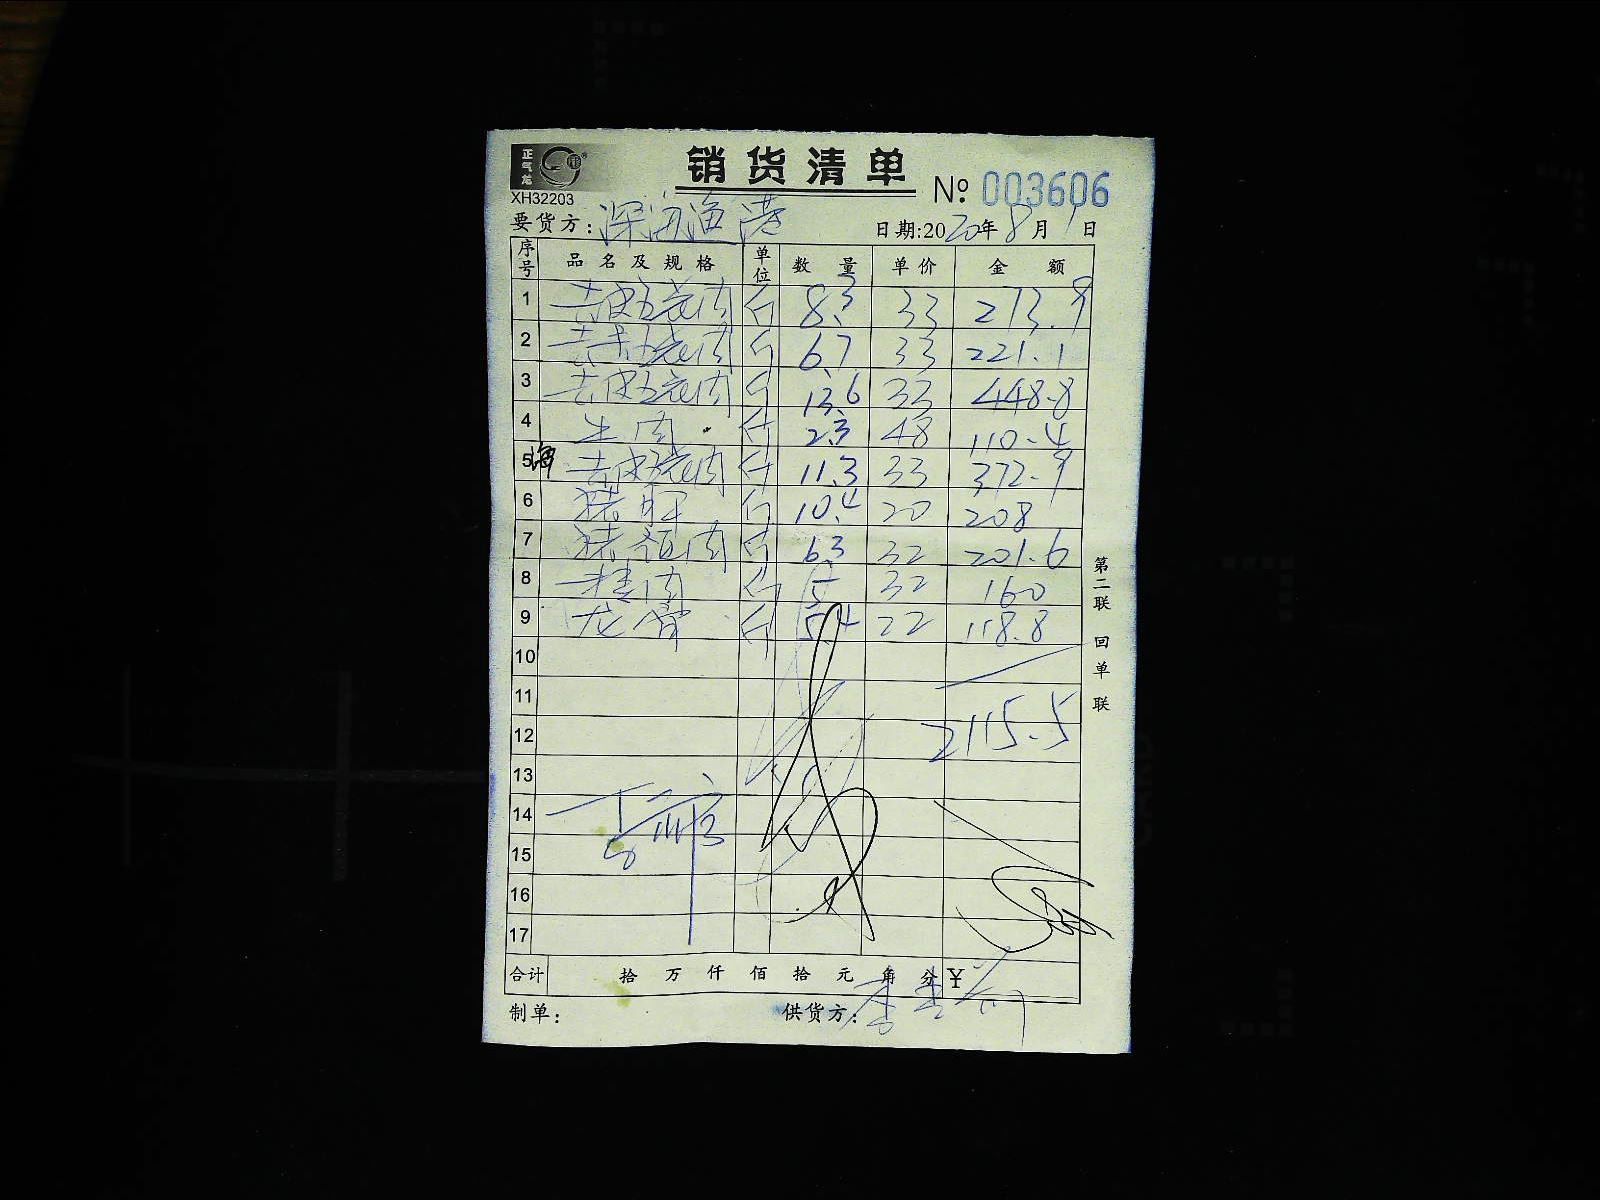 正气龙
XH32203
销货清单
№ 003606
要货方:深海渔港
日期:2020年8月1日
序号 品名及规格 单位 数量 单价 金额
1 去皮五花肉 斤 8.3 33 273.9
2 去皮五花肉 斤 6.7 33 221.1
3 去皮五花肉 斤 13.6 33 448.8
4 牛肉 斤 2.3 48 110.4
5 去皮五花肉 斤 11.3 33 372.9
6 猪肝 斤 10.4 20 208
7 猪颈肉 斤 6.3 32 201.6
8 精肉 斤 5 32 160
9 龙骨 斤 5.4 22 118.8
10
11
12
2115.5
13
14
15
16
17
合计 拾万仟佰拾元角分 ¥
制单:
供货方:
第二联 回单联